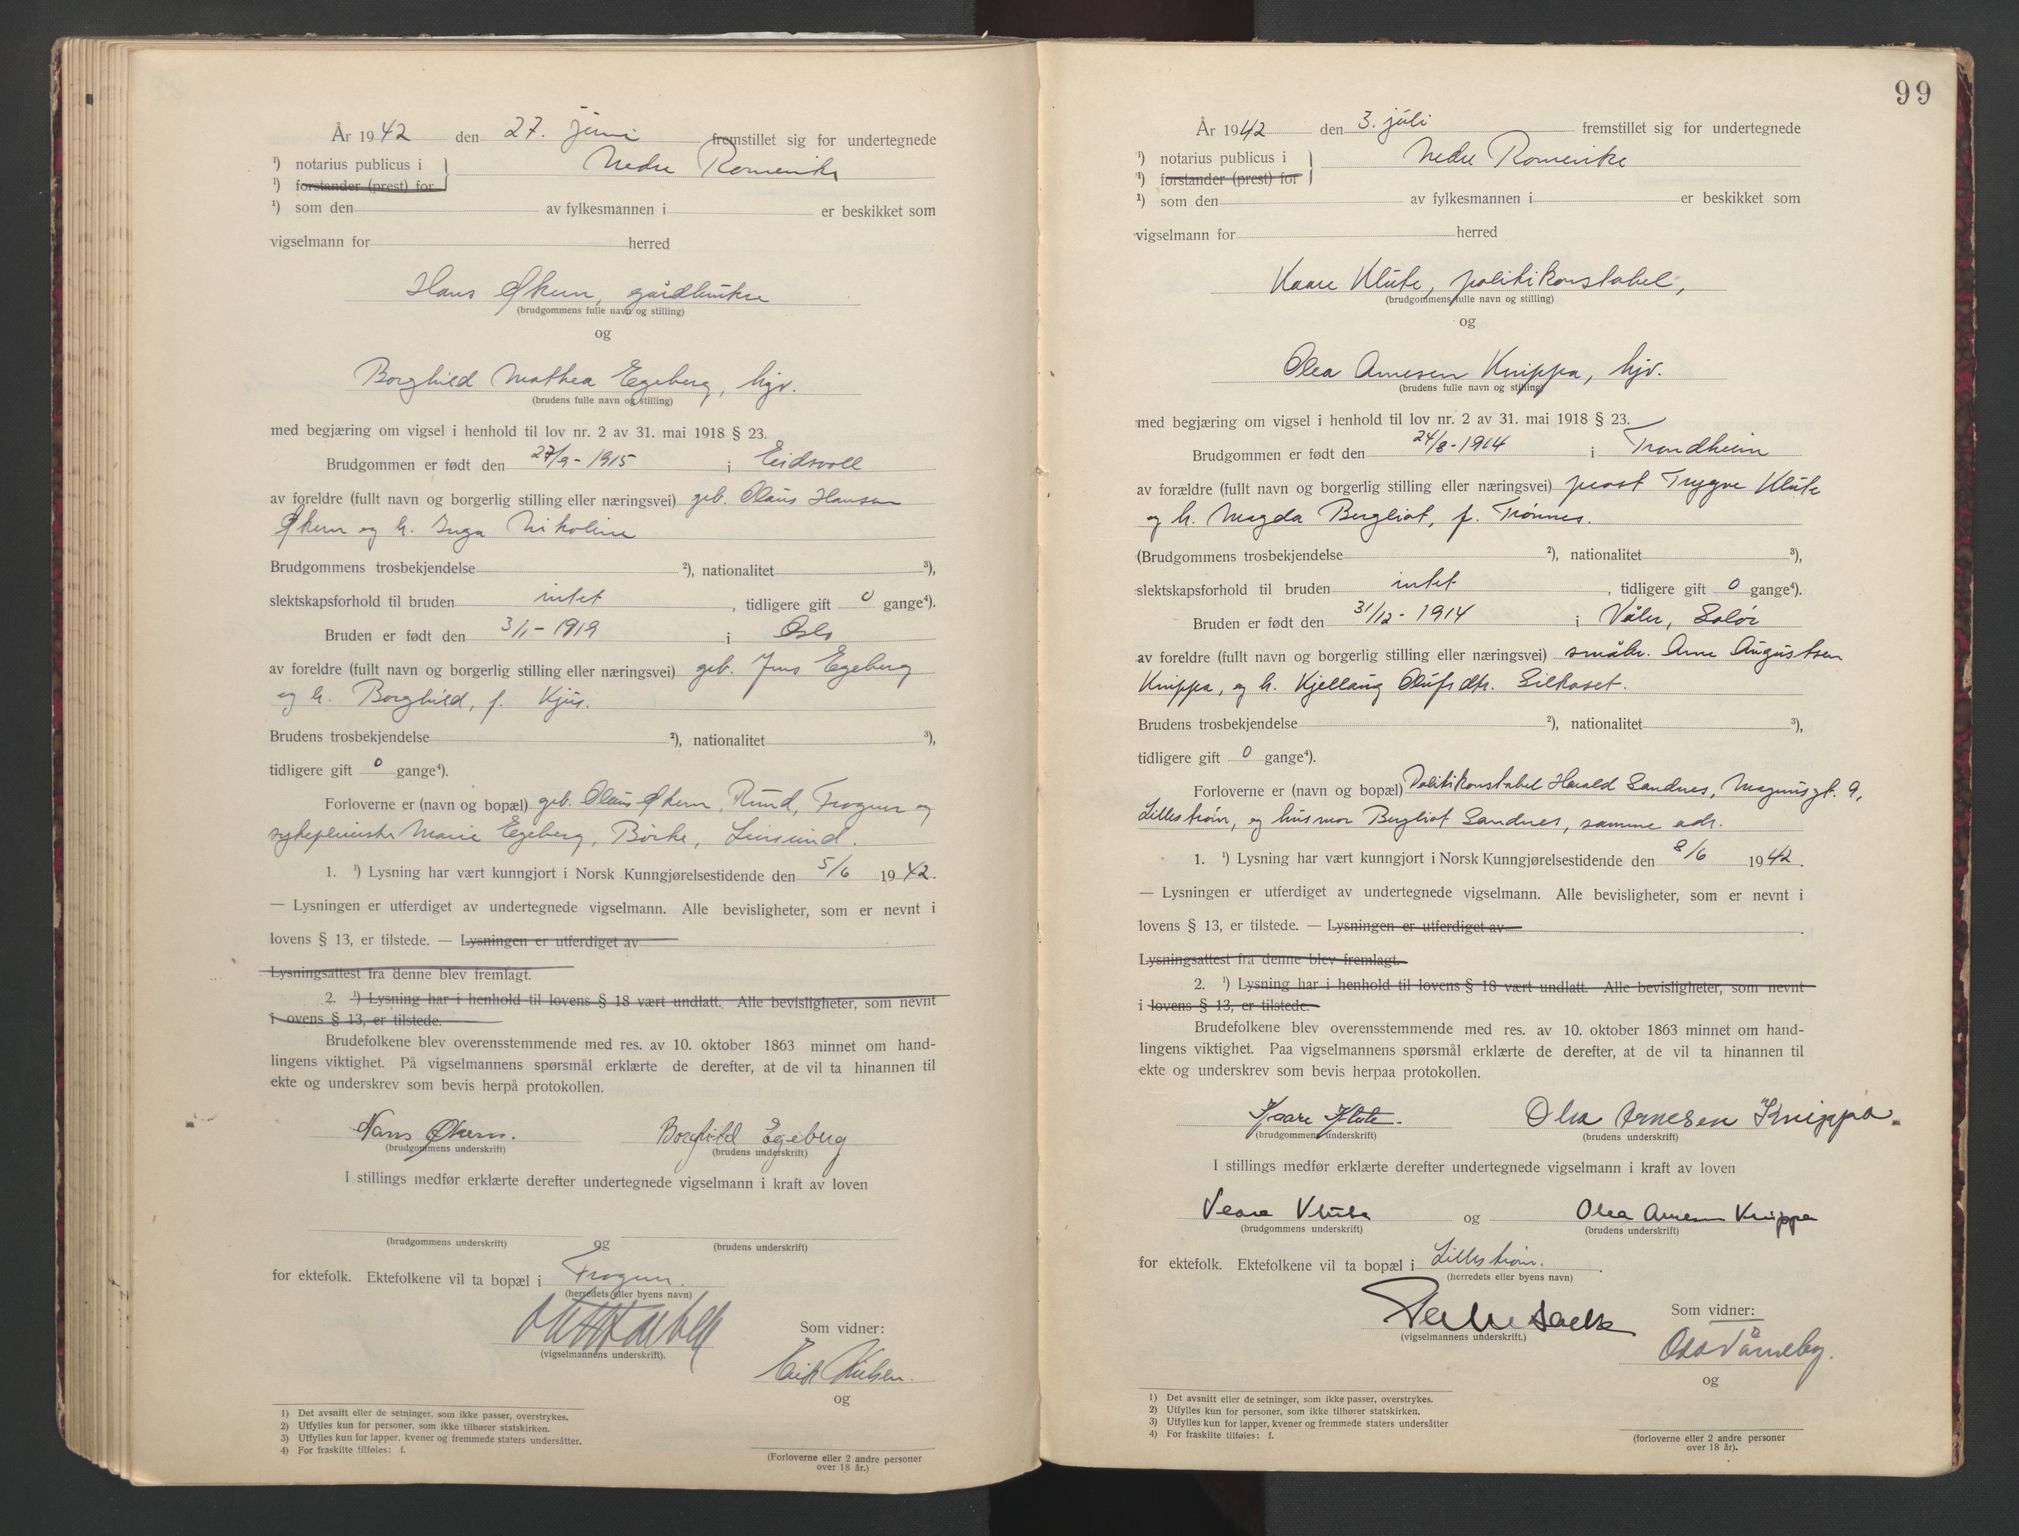 År 1942 den 27. juni fremstillet sig for undertegnede
¹) notarius publicus i Nedre Romerike
¹) forstander (prest) for
¹) som den av fylkesmannen i er beskikket som
vigselmann for herred
Hans Økern, gårdbruker
(brudgommens fulle navn og stilling)
og
Borghild Mathea Egeberg, hjv.
(brudens fulle navn og stilling)
med begjæring om vigsel i henhold til lov nr. 2 av 31. mai 1918 § 23.
Brudgommen er født den 27/9-1915 i Eidsvoll
av foreldre (fullt navn og borgerlig stilling eller næringsvei) gbr. Olaus Hansen
Økern og h. Inga Nikoline
Brudgommens trosbekjendelse ²), nationalitet ³),
slektskapsforhold til bruden intet, tidligere gift 0 gange⁴).
Bruden er født den 3/1-1919 i Oslo
av foreldre (fullt navn og borgerlig stilling eller næringsvei) gbr. Jens Egeberg
og h. Borghild, f. Kjus.
Brudens trosbekjendelse ²), nationalitet ³),
tidligere gift 0 gange⁴).
Forloverne er (navn og bopæl) gbr. Olaus Økern, Rund, Frogner og
sykepleierske Marie Egeberg, Börke,
1. ¹) Lysning har vært kunngjort i Norsk Kunngjørelsestidende den 5/6 1942.
— Lysningen er utferdiget av undertegnede vigselmann. Alle bevisligheter, som er nevnt i
lovens § 13, er tilstede. — Lysningen er utferdiget av
Lysningsattest fra denne blev fremlagt.
2. ¹) Lysning har i henhold til lovens § 18 vært undlatt. Alle bevisligheter, som nevnt
i ovens § 13, er tilstede.
Brudefolkene blev overensstemmende med res. av 10. oktober 1863 minnet om hand-
lingens viktighet. På vigselmannens spørsmål erklærte de derefter, at de vil ta hinannen til
ekte og underskrev som bevis herpå protokollen.
Hans Økern. Borghild Egeberg
(brudgommens underskrift) (brudens underskrift)
I stillings medfør erklærte derefter undertegnede vigselmann i kraft av loven
og
(brudgommens underskrift) (brudens underskrift)
for ektefolk. Ektefolkene vil ta bopæl i Frogner.
(herredets eller byens navn)
Som vidner:
(vigselmannens underskrift).
Erik Nielsen.
og
1) Det avsnitt eller de setninger, som ikke passer, overstrykes.
2) Utfylles kun for personer, som ikke tilhører statskirken.
3) Utfylles kun for lapper, kvener og fremmede staters undersåtter.
4) For fraskilte tilføies: f.
(Forloverne eller 2 andre personer
over 18 år.)
99
År 1942 den 3. juli fremstillet sig for undertegnede
¹) notarius publicus i Nedre Romerike
¹) forstander (prest) for
¹) som den av fylkesmannen i er beskikket som
vigselmann for herred
Kaare Klute, politikonstabel,
(brudgommens fulle navn og stilling)
og
Olea Arnesen Knippa, hjv.
(brudens fulle navn og stilling)
med begjæring om vigsel i henhold til lov nr. 2 av 31. mai 1918 § 23.
Brudgommen er født den 24/8-1914 i Trondheim
av forældre (fullt navn og borgerlig stilling eller næringsvei) prost Trygve Klute
og h. Magda Bergliot, f. Trönnes.
(Brudgommens trosbekjendelse ²), nationalitet ³),
slektskapsforhold til bruden intet, tidligere gift 0 gange⁴).
Bruden er født den 31/12-1914 i Våler, Solör
av foreldre (fullt navn og borgerlig stilling eller næringsvei) småbr. Arne Augustsen
Knippa, og h. Kjellaug Olufsdtr. Silkoset.
Brudens trosbekjendelse ²), nationalitet ³),
tidligere gift 0 gange⁴).
Forloverne er (navn og bopæl) Politikonstabel Harald Sandnes, Magnusgt. 9,
Lilleström, og husmor Bergliot Sandnes, samme adr.
1. ¹) Lysning har vært kunngjort i Norsk Kunngjørelsestidende den 8/6 1942.
— Lysningen er utferdiget av undertegnede vigselmann. Alle bevisligheter, som er nevnt i
lovens § 13, er tilstede. — Lysningen er utferdiget av
Lysningsattest fra denne blev fremlagt.
2. ¹) Lysning har i henhold til lovens § 18 vært undlatt. Alle bevisligheter, som nevnt
i lovens § 13, er tilstede.
Brudefolkene blev overensstemmende med res. av 10. oktober 1863 minnet om hand-
lingens viktighet. Paa vigselmannens spørsmål erklærte de derefter, at de vil ta hinannen til
ekte og underskrev som bevis herpaa protokollen.
Kjaare Klute. Olea Arnesen Knippa.
(brudgommens underskrift) (brudens underskrift)
I stillings medfør erklærte derefter undertegnede vigselmann i kraft av loven
Kaare Klute og Olea Arnesen Knippa
(brudgommens underskrift) (brudens underskrift)
for ektefolk. Ektefolkene vil ta bopæl i Lilleström.
(herredets eller byens navn)
Som vidner:
(vigselmannens underskrift.)
Odd Tårneby.
og
1) Det avsnitt eller de setninger, som ikke passer, overstrykes.
2) Utfylles kun for personer, som ikke tilhører statskirken.
3) Utfylles kun for lapper, kvener og fremmede staters undersåtter
4) For fraskilte tilføies: f.
(forloverne eller 2 andre personer
over 18 år).